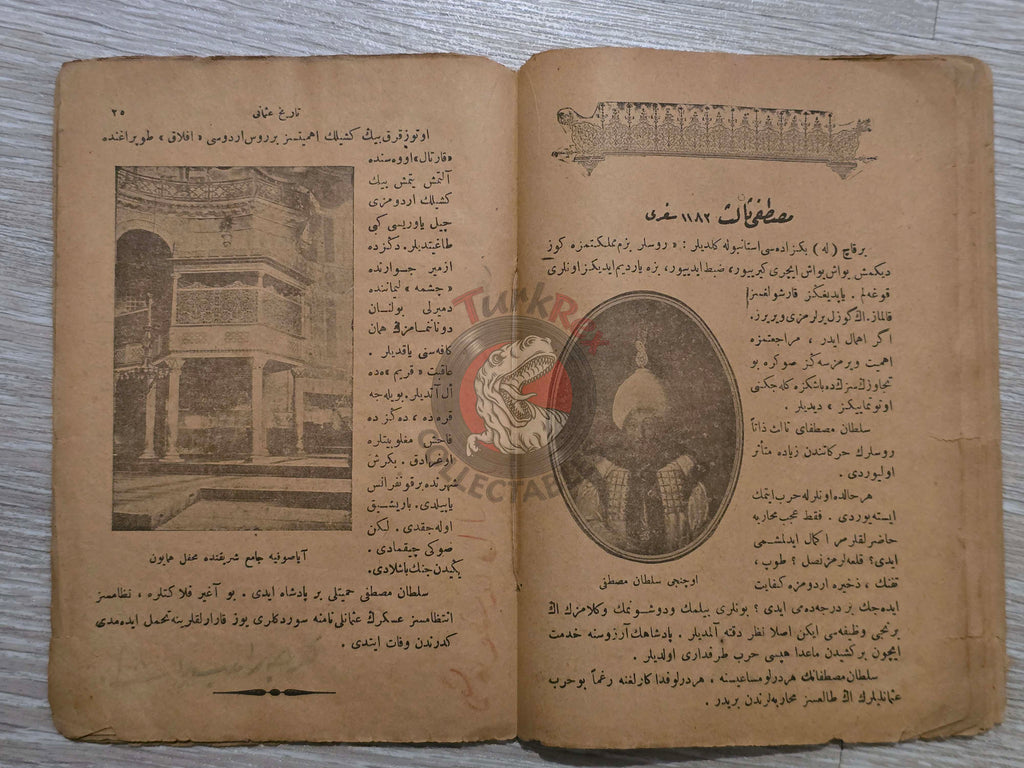 مصطفی ثالث ١١٨٢ سفری
برقاچ (له) بكزاده‌سی استانبوله كلدیلر : « روسلر بزم مملكتمزه كوز
دیكمش یواش یواش ایچری كیریبور، ضبط ایدیبور، بزه یاردیم ایدیكز اونلری
قوغه‌لم . یاپدیغكز قارشولقسز
قالماز. اڭ كوزل یرلرمزی ویریرز.
اكر اهمال ایدر ، مراجعتمزه
اهمیت ویرمزسه‌كز صوكره بو
تجاوزڭ سزڭ ده باشكزه كله‌جكنی
اونوتمایكز » دیدیلر .
سلطان مصطفای ثالث ذاتاً
روسلرك حركاتندن زیاده متأثر
اولیوردی .
هر حالده اونلرله حرب ایتمك
ایسته‌یوردی . فقط عجب محاربه
حاضرلقلرمز اكمال ایدلمشمی
ایدی؟ قلعه‌لرمز نصل ؟ طوپ ،
تفنك ، ذخیره اردومزه كفایت
اوچنجی سلطان مصطفی
ایده‌جك بر درجه‌ده‌می ایدی ؟ بونلری بیلمك ودوشونمك وكلامزڭ اڭ
برنجی وظیفه‌سی ایكن اصلا نظر دقته آلمدیلر . پادشاهك آرزوسنه خدمت
ایچون بركشیدن ماعدا هپسی حرب طرفداری اولدیلر .
سلطان مصطفانك هردرلو مساعیسنه ، هردرلو فداكارلغنه رغماً بو حرب
عثمانلیلرك اڭ طالعسز محاربه‌لرندن بریدر .
تاریخ عثمانی
٢٥
اوتوز قرق بیك كشیلك اهمیتسز بر روس اردوسی « افلاق » طوپراغنده
« قارتال » اووه‌سنده
آلتمش یتمش بیك
كشیلك اردومزی
چیل یاوریسی كبی
طاغیتدیلر. دكزده
ازمیر جوارنده
« چشمه » لیماننده
دمیرلی بولنان
دونانمامزڭ همان
كافه‌سنی یاقدیلر .
عاقبت « قریم » ده
أل آتدیلر. بویله‌جه
قره‌ده ، دكزده
فاحش مغلوبیتلره
اوغرادق . بكرش
شهرنده برقونفرانس
یاپیلدی. باریشیق
اوله‌جقدی. لكن
صوكی چیقمادی .
یكیدن جنك باشلادی.
آیاصوفیه جامع شریفنده محفل همایون
سلطان مصطفی حمیتلی بر پادشاه ایدی . بو آغیر فلاكتلره ، نظامسز
انتظامسز عسكرڭ عثمانلی نامنه سوردكلری یوز قارالقلرینه تحمل ایده‌مدی
كدرندن وفات ایتدی .
TurkRex
COLLECTABLES